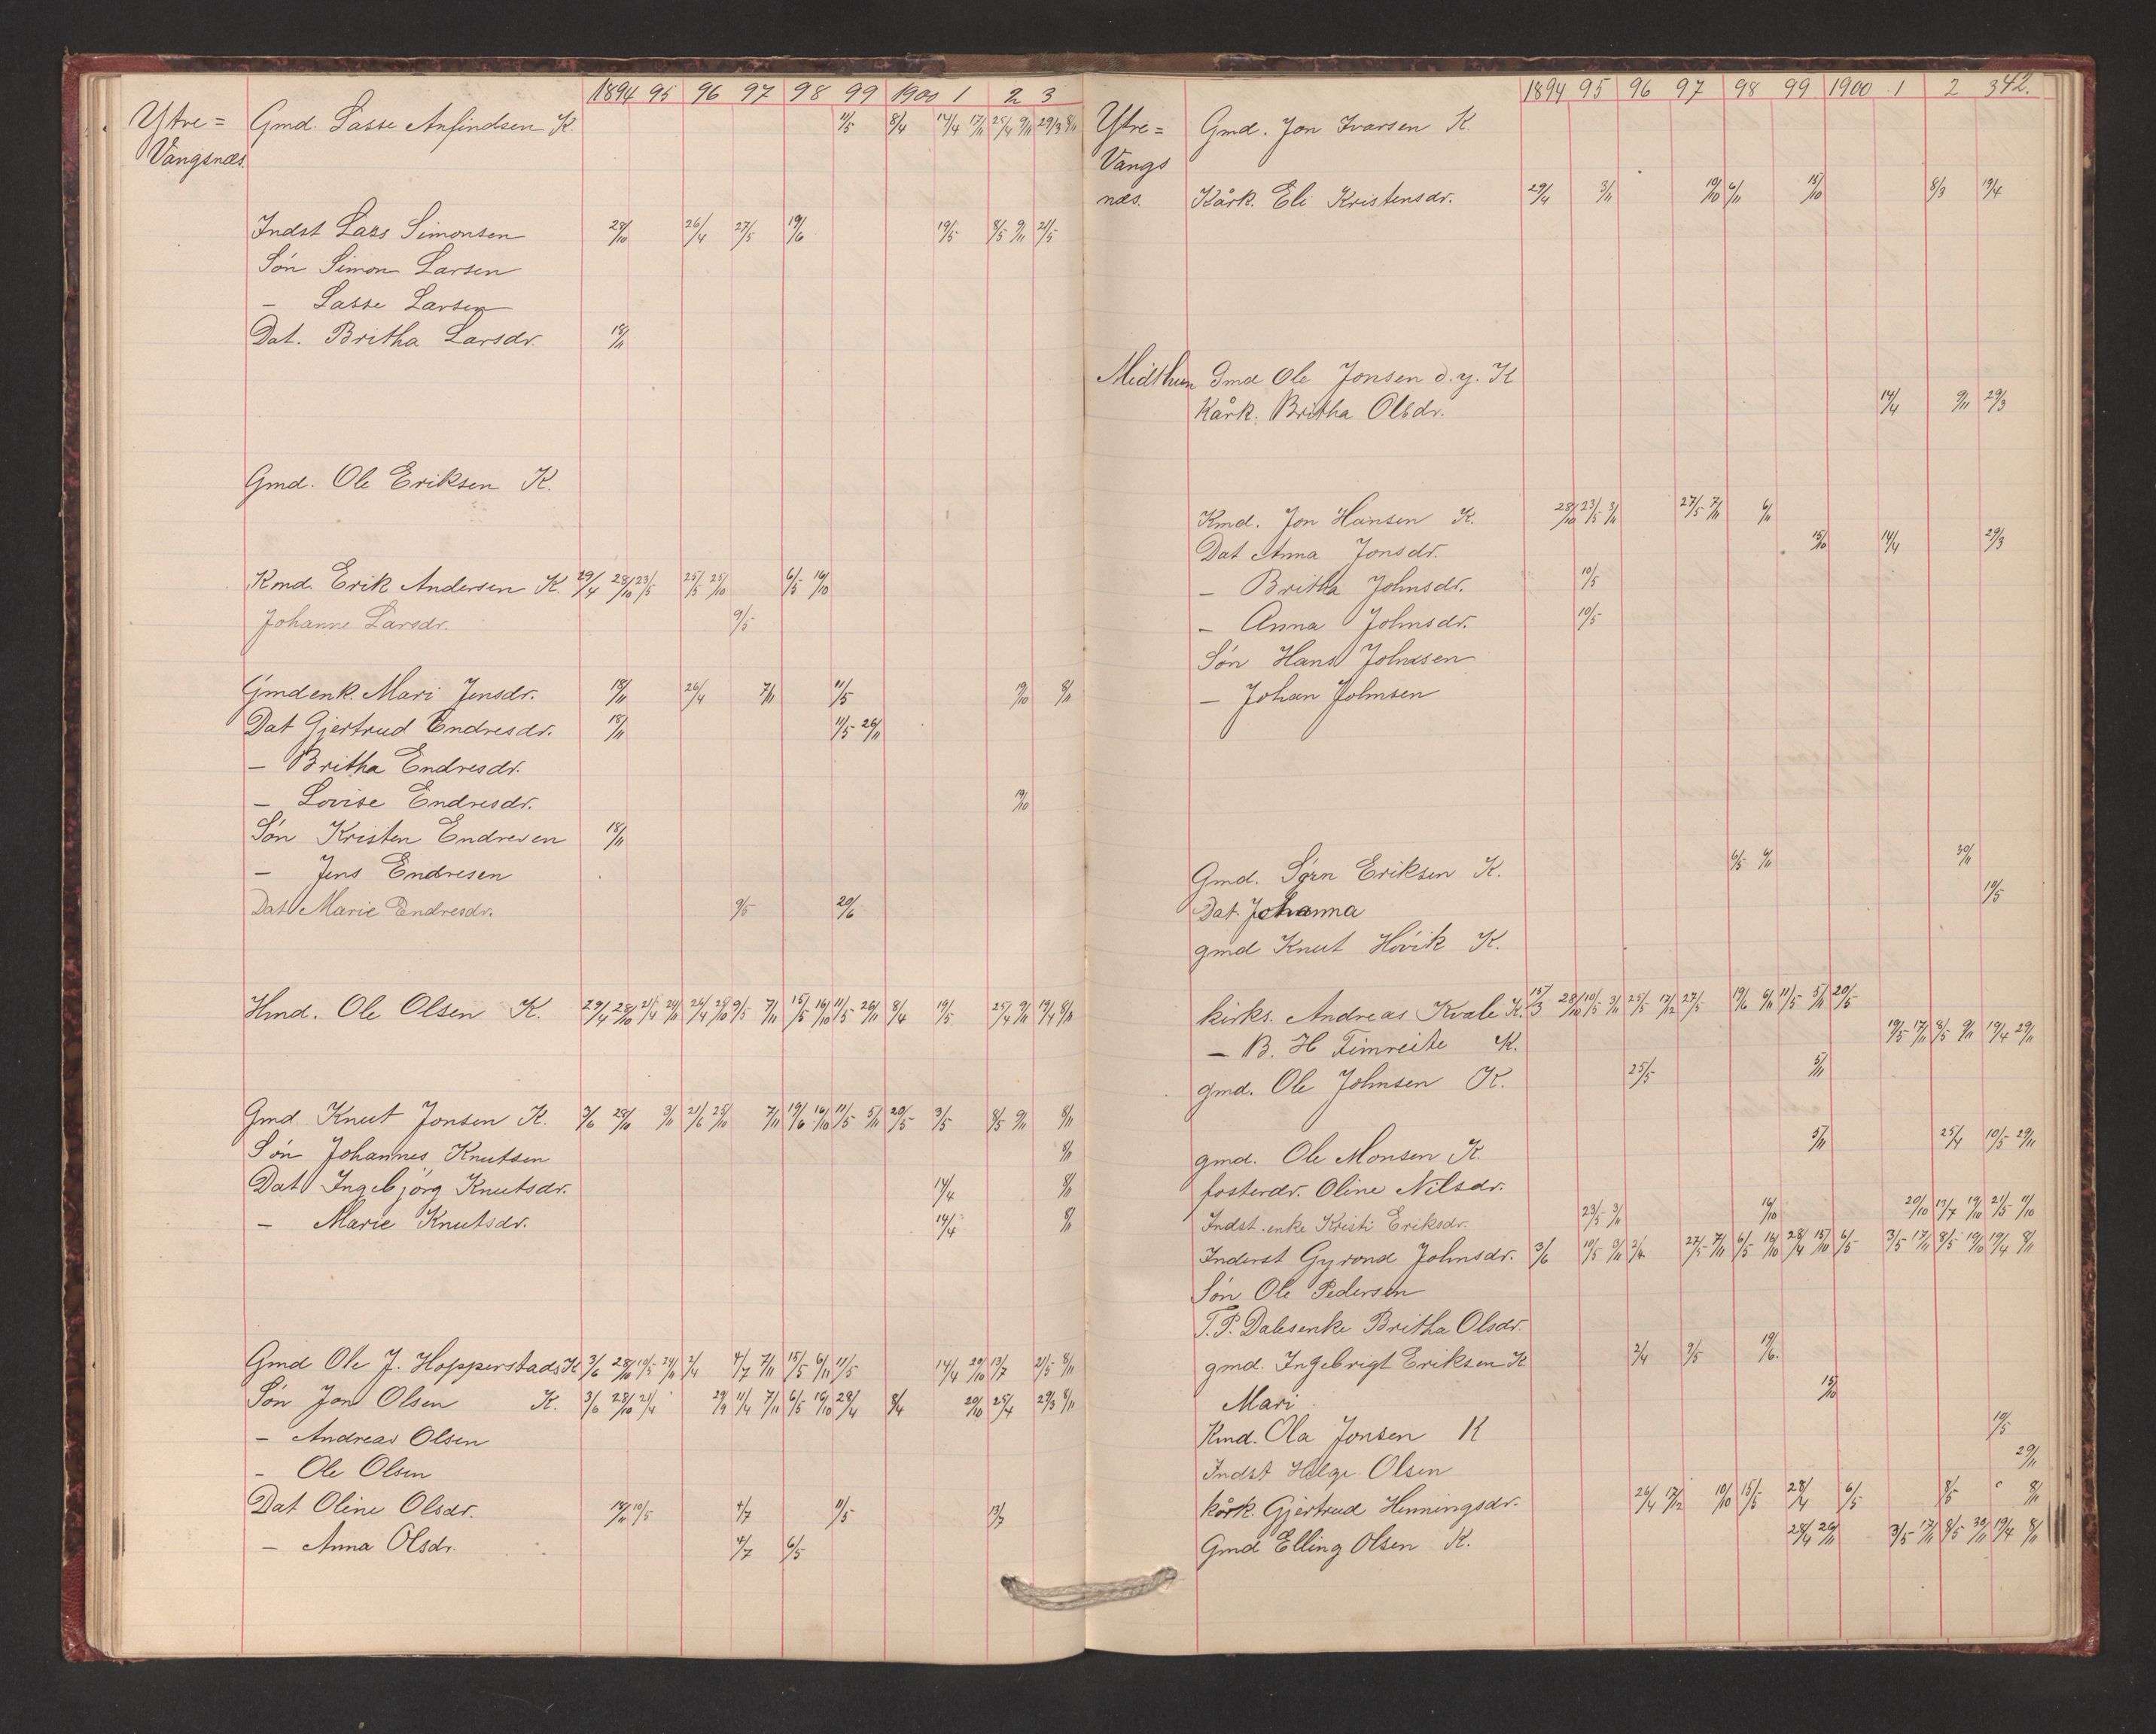 1894 95 96 97 98 99 1900 1 2 3
Ytre= Gmd. Lasse Anfindsen K. 11/5 8/4 14/4 17/11 25/4 9/11 29/3 8/11
Vangsnæs
Indst Lars Simonsen 28/10 26/4 27/5 19/6 19/5 8/5 9/11 21/5
Søn Simon Larsen
— Lasse Larsen
Dat. Britha Larsdr. 18/11
Gmd. Ole Eriksen K.
Kmd. Erik Andersen K. 29/4 28/10 23/5 25/5 25/10 6/5 16/10
Johanne Larsdr. 9/5
Gmdenk. Mari Jensdr. 18/11 26/4 7/11 11/5 19/10 8/11
Dat Gjertrud Endresdr. 18/11 11/5 26/11
— Britha Endresdr.
— Lovise Endresdr. 19/10
Søn Kristen Endresen 18/11
— Jens Endresen
Dat Marie Endresdr. 9/5 20/6
Hmd. Ole Olsen K. 29/4 28/10 21/4 24/11 26/4 28/10 9/5 7/11 15/5 16/10 11/5 26/11 8/4 19/5 25/4 9/11 19/4 8/11
Gmd Knut Jonsen K. 3/6 28/10 3/11 21/6 25/10 7/11 19/6 16/10 11/5 5/11 20/5 3/5 8/5 9/11 8/11
Søn Johannes Knutsen 8/11
Dat Ingebjørg Knutsdr. 14/4 8/11
— Marie Knutsdr. 14/4 8/11
Gmd Ole J. Hopperstads K 3/6 28/10 10/5 24/11 2/4 4/7 7/11 15/5 6/11 11/5 14/4 20/10 13/7 21/5 8/11
Søn Jon Olsen K. 3/6 28/10 21/4 29/9 11/4 7/11 6/5 16/10 28/4 8/4 20/10 25/4 29/3 8/11
— Andreas Olsen
— Ole Olsen
Dat Oline Olsdr. 18/11 10/5 4/7 11/5 13/7
— Anna Olsdr. 4/7 6/5
1894 95 96 97 98 99 1900 1 2 3 42.
Ytre= Gmd. Jon Ivarsen K.
Vangs
næs. Kårk. Eli Kristensdr. 29/4 3/11 10/10 6/11 15/10 8/3 19/4
Midthun Gmd Ole Jonsen d.y. K
Kårk. Britha Olsdr. 14/4 9/11 29/3
Kmd. Jon Hansen K. 28/10 23/5 3/11 27/5 7/11 6/11
Dat Anna Jonsdr. 15/10 14/4 29/3
— Britha Johnsdr. 10/5
— Anna Johnsdr. 10/5
Søn Hans Johnsen
— Johan Johnsen
Gmd. Sørn Eriksen K. 6/5 6/11 30/11
Dat. Johanna 10/5
gmd Knut Hovik K.
kirks. Andreas Kvale K. 15/3 28/10 10/5 3/11 25/5 17/12 27/5 19/6 6/11 11/5 5/11 20/5
— B. H Timreite K. 19/5 17/11 8/5 9/11 19/4 29/11
gmd. Ole Johnsen K. 25/5 5/11
gmd. Ole Monsen K. 5/11 25/4 10/5 29/11
fosterdr. Oline Nilsdr.
Indst.enke Kristi Eriksdr. 23/5 3/11 16/10 20/10 13/7 19/10 21/5 11/10
Inderst Gyrond Johnsdr. 3/6 10/5 3/11 2/4 27/5 7/11 6/5 16/10 28/4 15/10 6/5 3/5 17/11 8/5 19/10 19/4 8/11
Søn Ole Pedersen
T. P. Dalesenke Britha Olsdr.
gmd. Ingebrigt Eriksen K 2/4 9/5 19/6
Mari 15/10
Kmd. Ola Jonsen K 10/5
Indst Helge Olsen 29/11
kårk. Gjertrud Henningsdr. 26/4 17/12 10/10 15/5 28/4 6/5 8/5 8/11
Gmd Elling Olsen K. 28/4 26/11 3/5 17/11 8/5 30/11 19/4 8/11